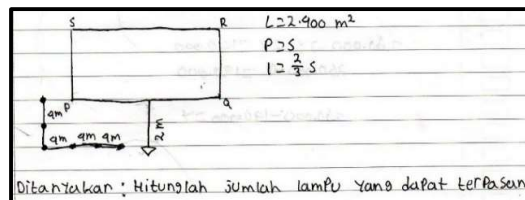 S R L = 2.400 m²
P = S
l = 2/3 S
4m P Q
4m 4m 4m 2 m
Ditanyakan : Hitunglah jumlah lampu yang dapat terpasan